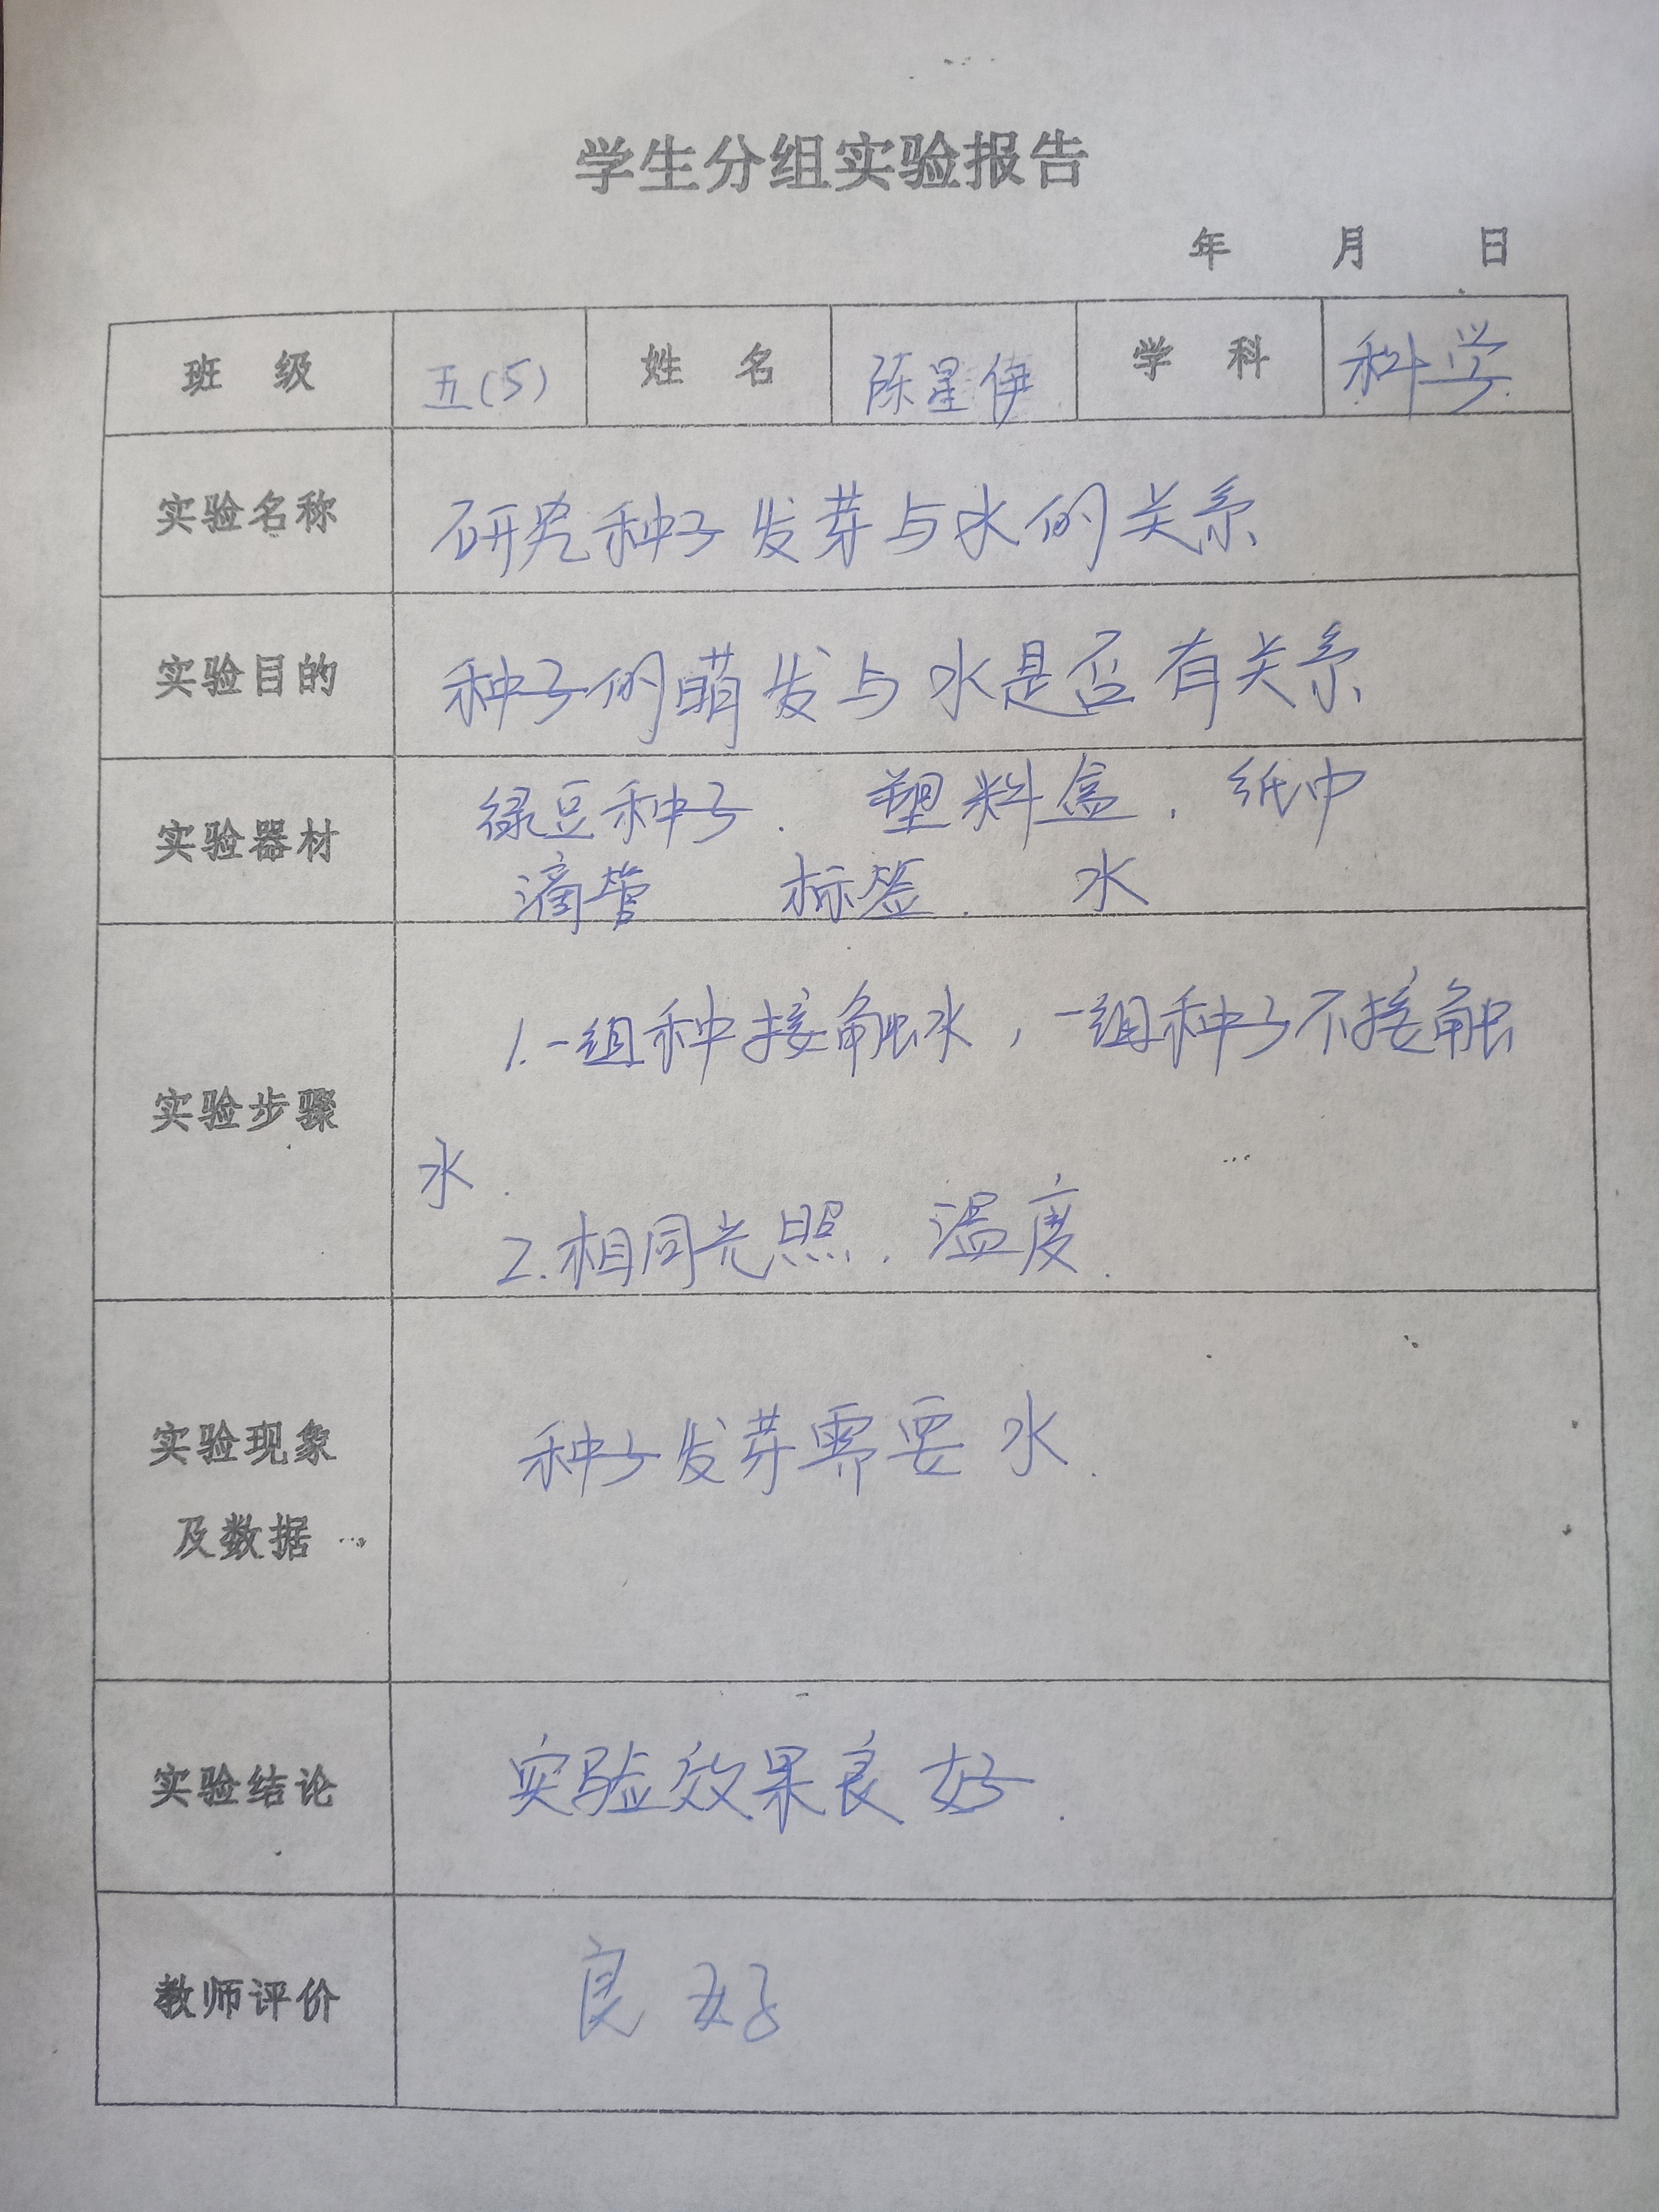 学生分组实验报告
年 月 日
班 级 五(5) 姓 名 陈星伊 学 科 科学.
实验名称 研究种子发芽与水的关系
实验目的 种子的萌发与水是否有关系
实验器材 绿豆种子. 塑料盒. 纸巾
滴管 标签. 水
实验步骤 1.一组种接触水,一组种子不接触
水.
2.相同光照.温度.
实验现象 种子发芽需要水.
及数据
实验结论 实验效果良好.
教师评价 良好